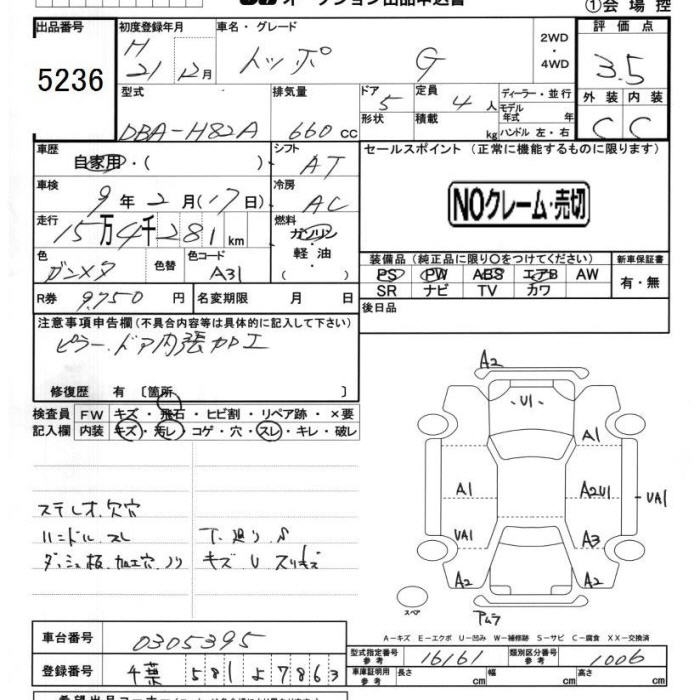 オークション出品申込書
①会場控
出品番号 初度登録年月 車名・グレード 2WD ・ 4WD 評価点
5236 H 21 12月 トッポ G 3.5
型式 排気量 ドア 5 定員 4人 ディーラー・並行 外装 内装
DBA-H82A 660cc 形状 積載 kg モデル年式 年 ハンドル 左・右 C C
車歴 自家用・( ) シフト AT セールスポイント (正常に機能するものに限ります)
車検 9年2月(17日) 冷房 AC NOクレーム・売切
走行 15万4千281km 燃料 ガソリン 軽油 ( )
色 ガンメタ 色替 色コード A31 装備品(純正品に限り○をつけてください) 新車保証書
PS PW ABS エアB AW 有・無
SR ナビ TV カワ
R券 9,750円 名変期限 月 日 後日品
注意事項申告欄(不具合内容等は具体的に記入して下さい)
ピラー、ドア内張加工
修復歴 有 〔箇所 〕
検査員 FW キズ・飛石・ヒビ割・リペア跡・×要
記入欄 内装 キズ・汚レ・コゲ・穴・スレ・キレ・破レ
ステレオ欠穴
ハンドルスレ 下廻りS
ダッシュ板加工穴ノリ キズUスリキズ
A2
U1
A1
A1 A2U1 UA1
UA1 A3
A2 A2
スペア アムラ
A-キズ E-エクボ U-凹み W-補修跡 S-サビ C-腐食 XX-交換済
車台番号 0305395
型式指定番号 参考 16161 類別区分番号 参考 1006
登録番号 千葉 581 よ 7863 車庫証明用 参考 長さ cm 幅 cm 高さ cm